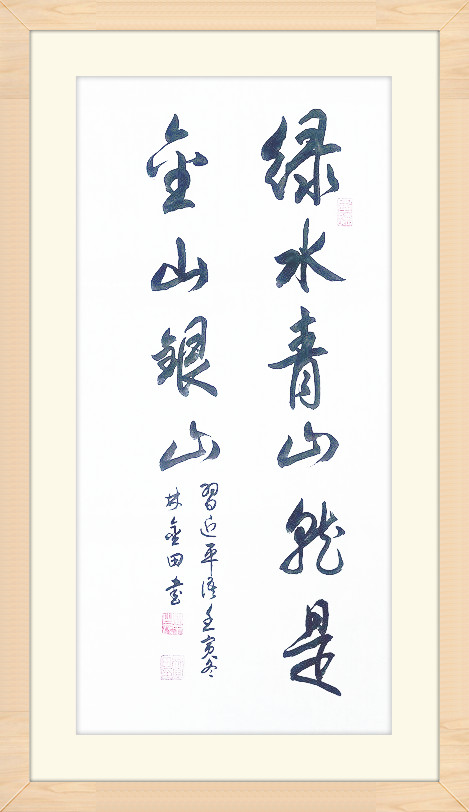 绿水青山就是
金山银山
習近平語壬寅冬
林金田書